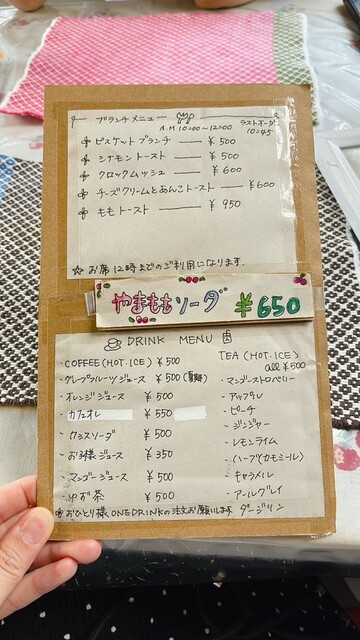 ブランチメニュー
A.M 10:00〜12:00
ラストオーダー
10:45
ビスケットブランチ ¥500
シナモントースト ¥500
クロックムッシュ ¥600
チーズクリームとあんこトースト ¥600
ももトースト ¥950
☆お席12時までのご利用になります.
やまももソーダ ¥650
DRINK MENU
・COFFEE(HOT.ICE) ¥500
・グレープフルーツジュース ¥500
・オレンジジュース ¥500
・カフェオレ ¥550
・カシスソーダ ¥500
・お子様ジュース ¥350
・マンゴージュース ¥500
・ゆず茶 ¥500
TEA(HOT.ICE)
all ¥500
・マンゴーストロベリー
・アップル
・ピーチ
・ジンジャー
・レモンライム
・(ハーブ)カモミール
・キャラメル
・アールグレイ
ダージリン
おひとり様ONE DRINKの注文お願いします